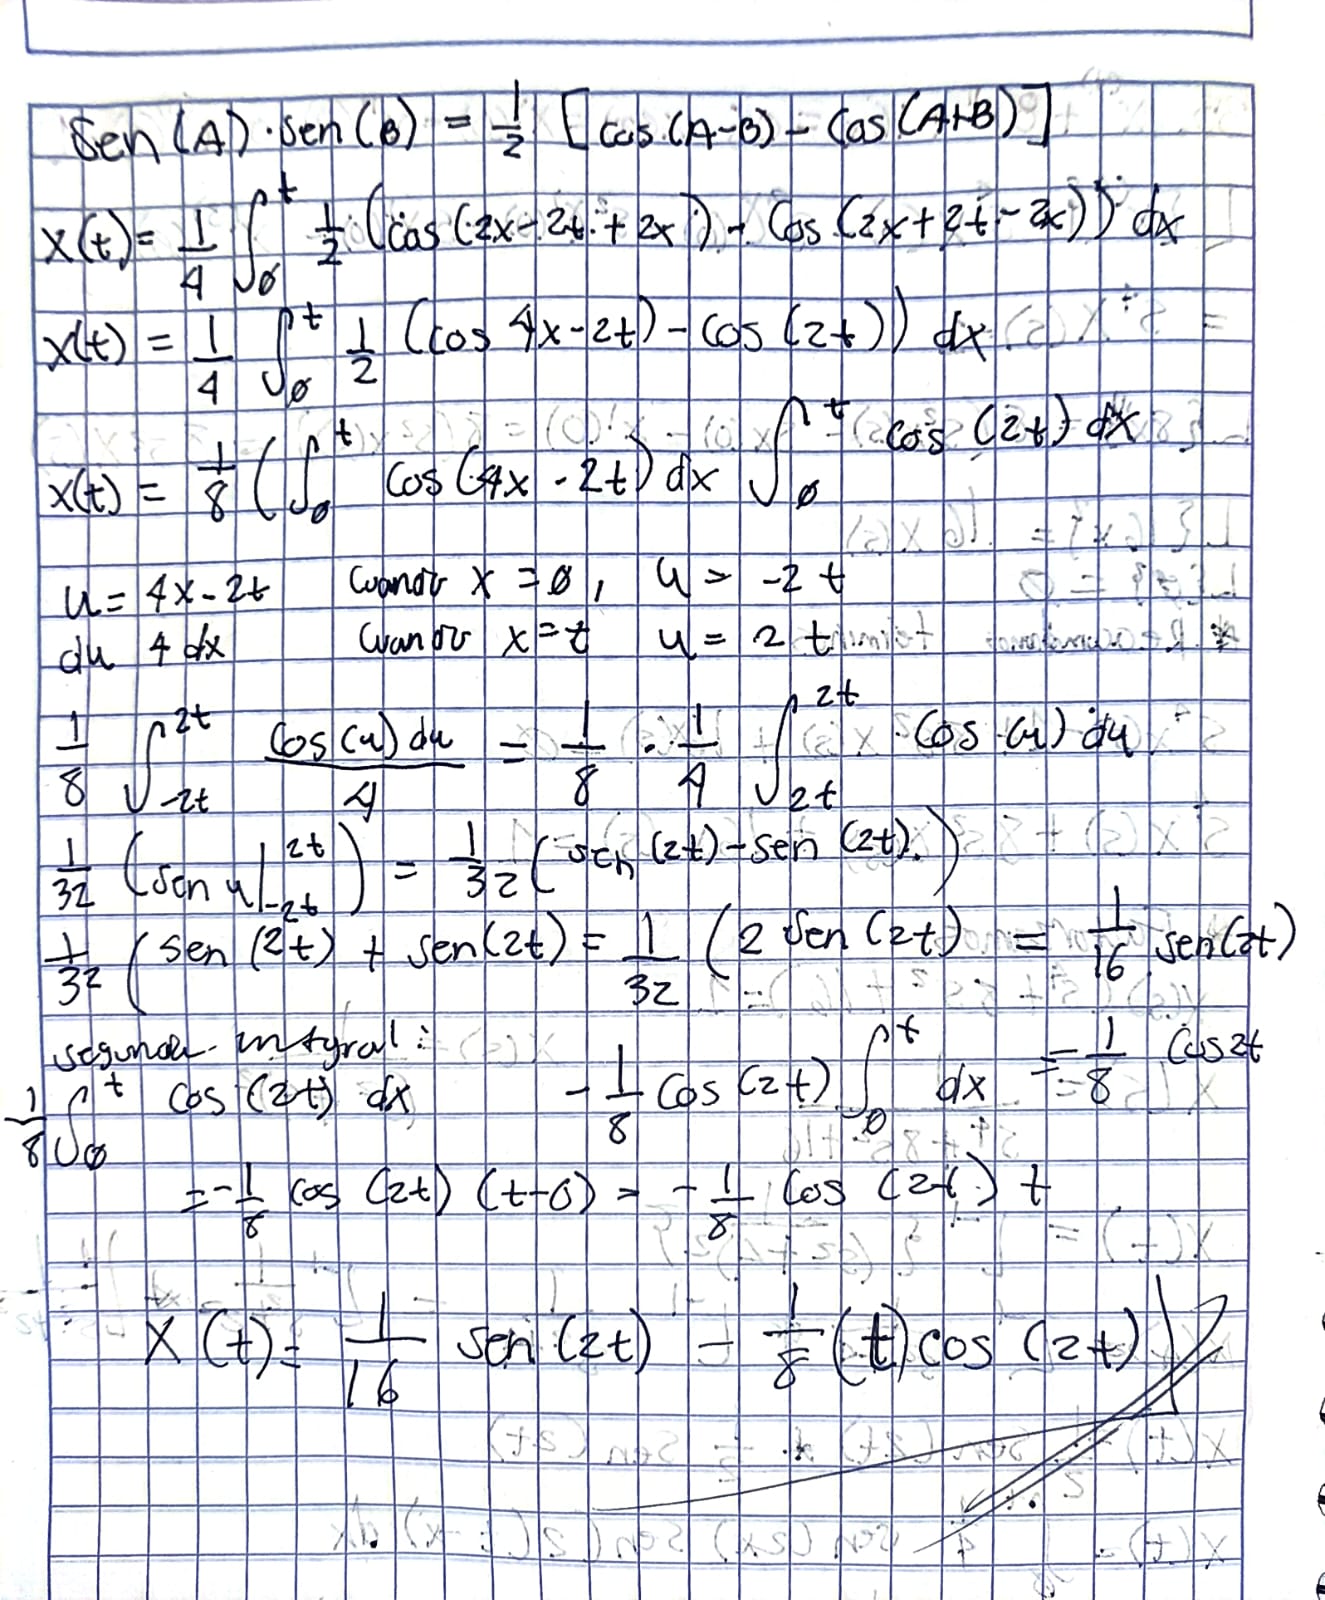 Sen(A)·sen(B) = 1/2 [cos(A-B) - Cos(A+B)]
X(t) = 1/4 ∫₀ᵗ 1/2 (cos(2x-2t+2x) - Cos(2x+2t-2x)) dx
x(t) = 1/4 ∫₀ᵗ 1/2 (cos 4x-2t) - cos(2t)) dx
x(t) = 1/8 (∫₀ᵗ cos(4x-2t) dx ∫₀ᵗ cos(2t) dx
u = 4x-2t cuando x = 0, u = -2t
du 4 dx cuando x = t u = 2t
1/8 ∫₋₂ₜ²ᵗ cos(u) du/4 = 1/8 · 1/4 ∫₂ₜ²ᵗ cos(u) du
1/32 (sen u |₋₂ₜ²ᵗ) = 1/32 (sen(2t) - sen(2t).)
1/32 (sen(2t) + sen(2t) = 1/32 (2 Sen(2t) = 1/16 sen(2t)
segunda integral:
1/8 ∫₀ᵗ cos(2t) dx -1/8 cos(2t) ∫₀ᵗ dx = -1/8 cos 2t
= -1/8 cos(2t) (t-0) = -1/8 cos(2t) t
X(t) = 1/16 sen(2t) - 1/8 (t) cos(2t)